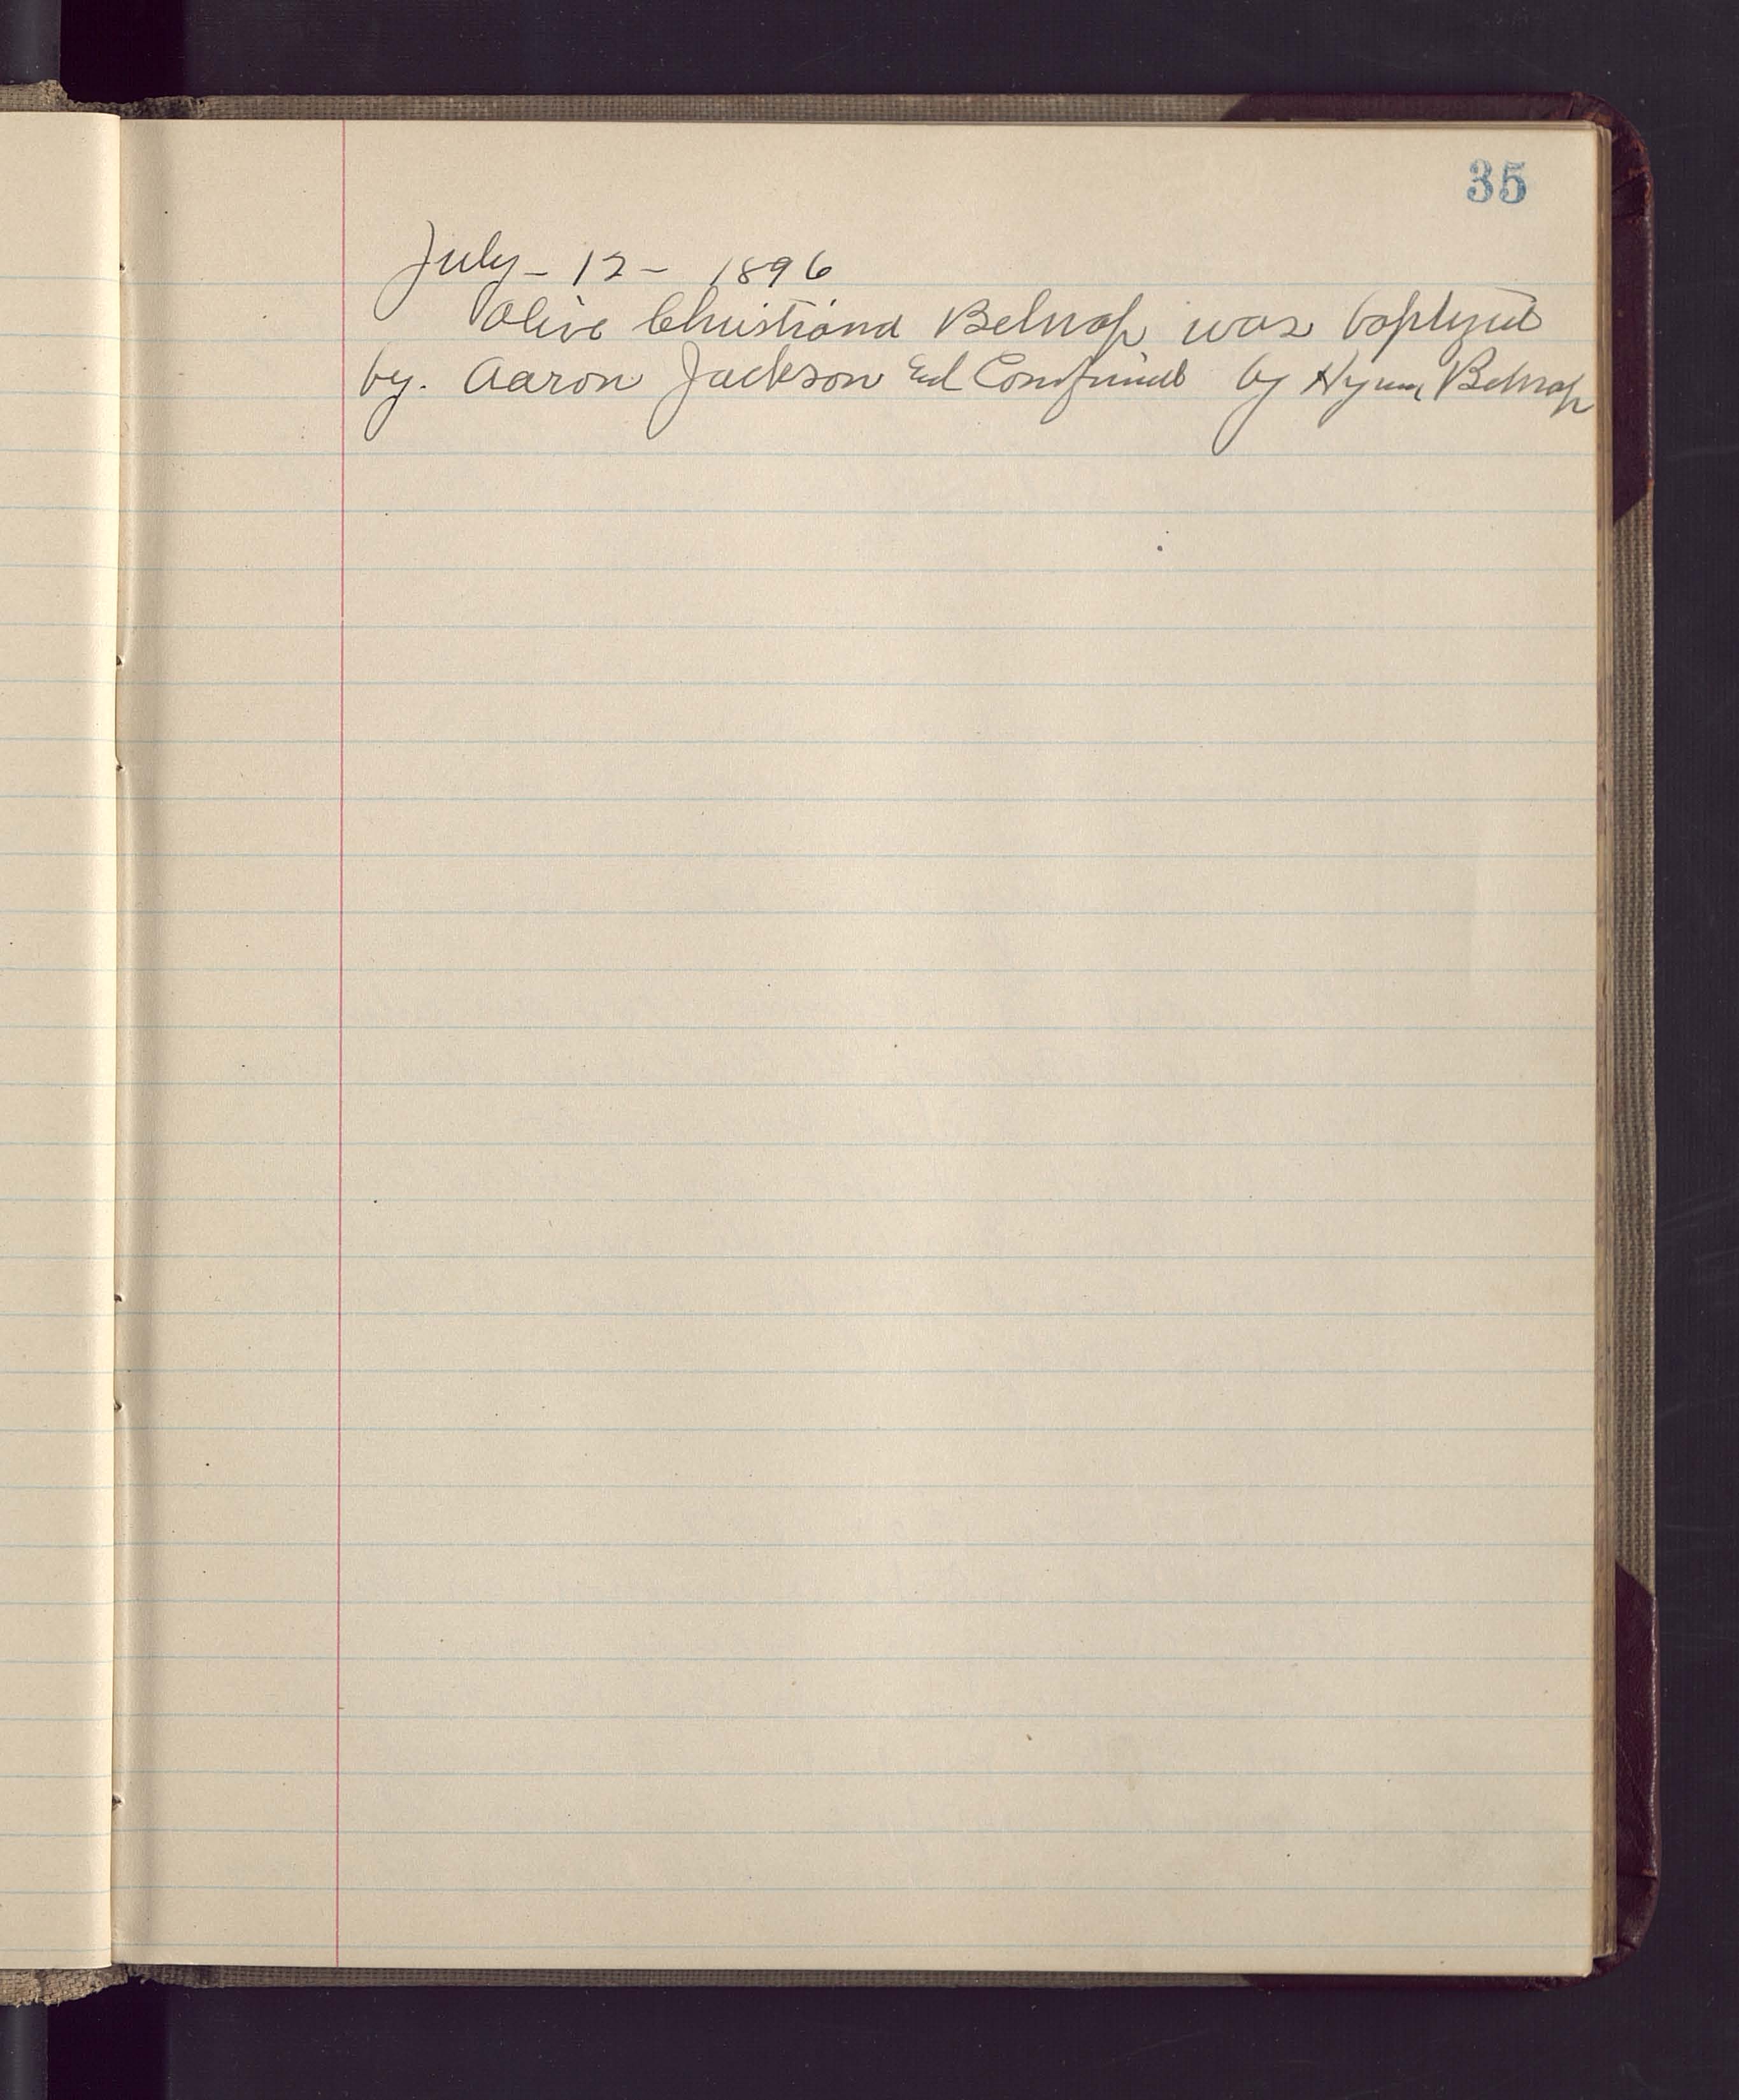 35
July - 12 - 1896
Olive Christiana Belnap was baptized
by. Aaron Jackson Ed Confirmed by Hyrum Belnap